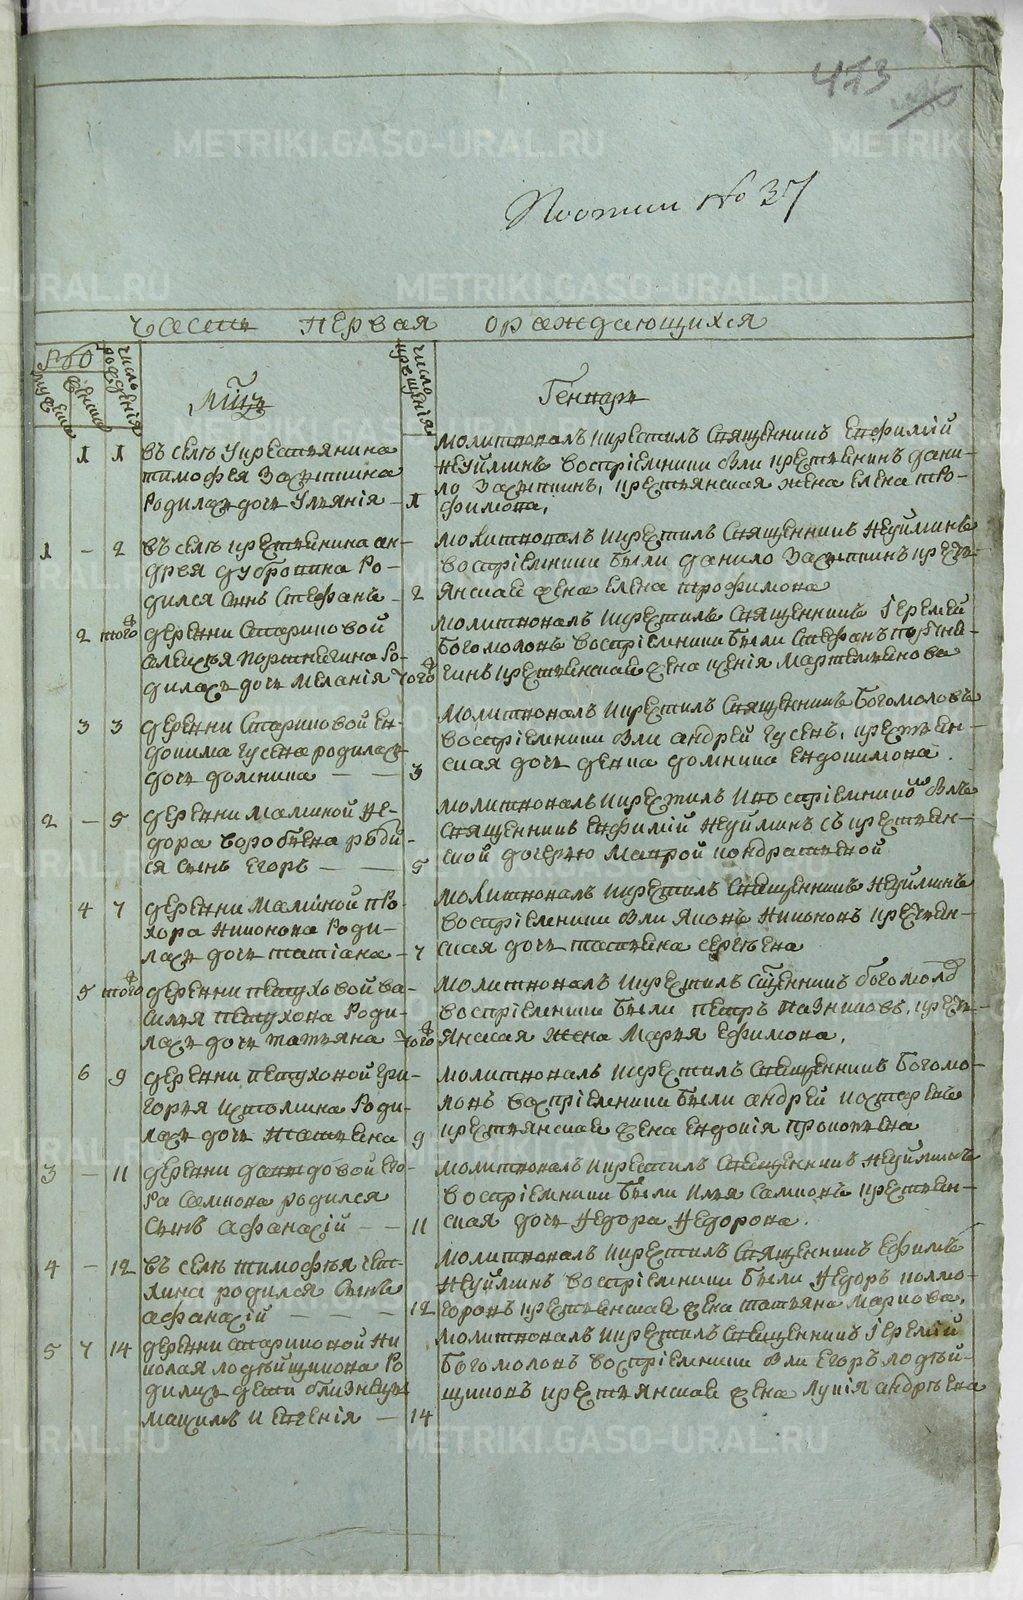 413
No 37
часть первая о раждающихся
число рождения
мужеска
женска
число крещения
Генварь
1 1 въ селѣ У крестьянина
тимофея
родилась дочь Улянія — 1
молитвовалъ икрестилъ Священникъ Евфимій
Неуйминъ воспріемники были крестьянинъ дани-
ло крестьянская жена Елена тро-
фимова,
1 — 2 въ селѣ крестьянина ан-
дрея дубровина Ро-
дился сынъ Стефанъ — 2
молитвовалъ икрестилъ Священникъ Неуйминъ
воспріемники были данило крест-
янская жена Елена трофимова
2 того ж деревни Стариковой
родилась дочь Меланія того ж
молитвовалъ икрестилъ Священникъ Іеремей
Богомоловъ воспріемники были Стефанъ
крестьянская жена
3 3 деревни Стариковой Ев-
докима Гусева родилась
дочь домника — — 3
молитвовалъ икрестилъ Священникъ Богомоловъ
воспріемники были андрей Гусевъ, крестьян-
ская дочь девка домника Евдокимова
2 — 5 деревни Маминой Fе-
дора воробьева роди-
ся сынъ Егоръ — — 5
молитвовалъ икрестилъ
Священникъ Евфимій Неуйминъ съ крестьян-
ской дочерью Маврой кондратьевой
4 7 деревни Маминой про-
хора Никонова Роди-
лась дочь татіана — 7
молитвовалъ икрестилъ Священникъ Неуйминъ
воспріемники были Яковъ Никоновъ крестьян-
ская дочь татьяна сергѣева
5 того ж деревни петуховой ва-
силья петухова Роди-
лась дочь татьяна того ж
молитвовалъ икрестилъ Сщенникъ богомоло
воспріемники были петръ крест-
янская жена Марья Ефимова,
6 9 деревни петуховой гри-
горья Истомина Роди-
лась дочь татьяна 9
молитвовалъ икрестилъ Священникъ Богомо-
ловъ воспріемники были андрей
крестьянская жена Евдокія прокопьева
3 — 11 деревни давыдовой его-
ра Самкова родился
сынъ афанасій — — 11
молитвовалъ икрестилъ Священникъ Неуйминъ
воспріемники были Илья Самковъ крестьян-
ская дочь Fедора Fедорова.
4 — 12 въ селѣ тимофѣя
родился сынъ
афанасій — 12
молитвовалъ икрестилъ Священникъ Ефимъ
Неуйминъ воспріемники были Fедоръ колмо-
горовъ крестьянская жена татьяна Маркова,
5 7 14 деревни стариковой Ни
колая лодѣйщикова Ро
дились дети близнецы
Максимъ и Евгенія — 14
молитвовалъ икрестилъ Священникъ Іеремій
Богомоловъ воспріемники были Егоръ лодѣй-
щиковъ крестьянская жена Лукія андрѣева